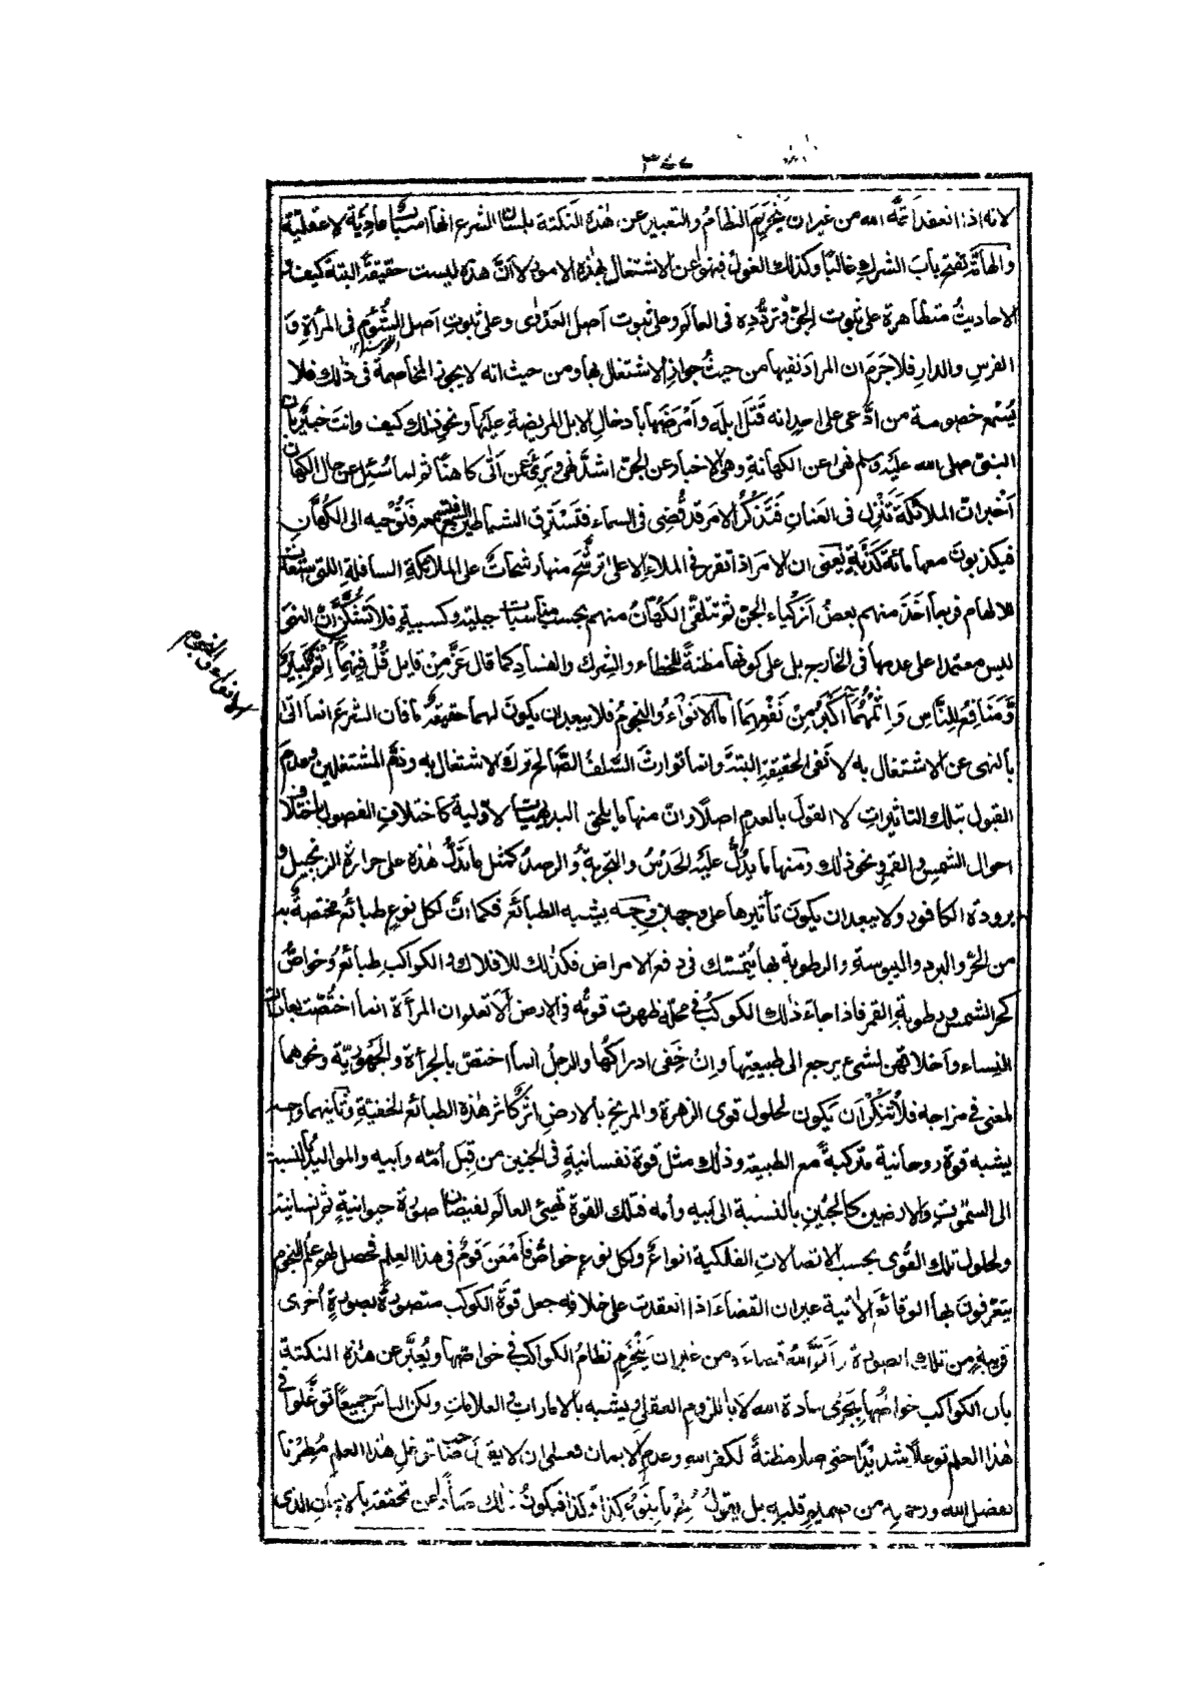 ٣٧٧
لانه اذا انعقد اتمه الله من غير ان ينخرم النظام والتعبير عن هذه النكتة بلسان الشرع انها اسباب عادية لا عقلية
والهامة تفتح باب الشرك غالبًا وكذلك الغول فنهوا عن الاشتغال بهذه الامور لا انَّ هذه ليست حقيقةً البتة كيف و
الاحاديثُ متظاهرة على ثبوت الجنّ وتردُّدِه فى العالم وعلى ثبوت اصل العدوٰى وعلى ثبوتِ اصل الشُؤم فى المرأةِ و
الفرسِ والدارِ فلا جَرَمَ ان المرادَ نفيها من حيثُ جوازِ الاشتغال بها ومن حيث انه لا يجوز المخاصمة فى ذٰلك فلا
يُسْمع خصومة من ادَّعى على احدٍ انه قَتَل ابلَه وأمْرَضَها بادخالِ الابل المريضةِ عليها ونحو ذٰلك كيف وانتَ خبيرٌ بان
النبى صلى الله عليه وسلم نهى عن الكهانةِ وهى الاخبار عن الجنّ اشدَّ نهى وبَرِئَ عَمن أتٰى كاهنًا ثم لما سُئِل عن حال الكهان
اَخْبر ان الملائكة تَنْزِل فى العَنانِ فتَذكُر الامر قد قُضِى فى السماء فتَسْترِق الشياطين السمع فتسمعه فتُوحيه الى الكُهّانِ
فيكذبون معها مائة كَذْبَةٍ يعنى ان الامر اذا تقرر فى الملاء الاعلى ترشَّح منها رشحاتٌ على الملائكةِ السافلةِ التى استعدت
للالهام فربما اَخَذَ منهم بعضُ أزكياء الجن ثم تتلقى الكُهّانُ منهم بحسب مناسبات جبلية وكسبيةٍ فلا تَشُكَّنَّ انّ النهى
ليس معتمدا على عدمها فى الخارج بل على كونها مظنةً للخطاء والشرك والفساد كما قال عَزَّ مِنْ قايل قُلْ فِيْهِمَا اِثْمٌ كَبِيْرٌ
وَّمَنَافِعُ لِلنَّاسِ وَاِثْمُهُمَا اَكْبَرُ مِنْ نَّفْعِهِمَا اما الانْوَاءُ والنجومُ فلا يبعد ان يكون لهما حقيقةٌ ما فان الشرع انما اتى
بالنهى عن الاشتغال به لا نَفى الحقيقةِ البتةَ وانما توارث السَّلفُ الصَّالح ترك الاشتغال به وذمَّ المشتغلين وعدم
القبول بتلك التاثيراتِ لا القولَ بالعدمِ اصلًا وانّ منها ما يلحق البديهيات الاولية كاختلافِ الفصول باختلاف
احوال الشمسِ والقمرِ ونحو ذلك ومنها ما يدُلُّ عليه الحَدْسُ والتجربةُ والرصدُ كمثل ما تَدلُّ هٰذه على حرارةِ الزنجبيل و
برودة الكافور ولا يبعد ان يكون تأثيرها على وجهين وجهٍ يشبه الطبائعَ فكما انّ لكل نوعٍ طبائعُ مختصةٌ به
من الحرِّ والبردِ واليبوسة والرطوبةِ بها يُتَمسّك فى دفع الامراض فكذٰلك للافلاك والكواكب طبائعُ وخواصُّ
كحر الشمس ورطوبةِ القمر فاذا جاءَ ذٰلك الكوكبُ فى محله ظهرت قوتُه فى الارضِ اَلا تعلم ان المرأة انما اختُصّت بعاداتِ
النِساءِ واخلاقهن لشئ يرجع الى طبيعتها وانْ خَفى ادراكُها والرجلُ انما اختصّ بالجُرأة والجَهْوريّة ونحوهما
لمعنى فى مزاجه فلا تُنكِرْ ان يكون لحلول قوى الزهرة والمريخ بالارضِ اثرٌ كاثر هٰذه الطبائعِ الخفيَّةِ وثانيهما وجه
يشبه قوة روحانية متركبةً مع الطبيعة وذلك مثل قوة نفسانيةٍ فى الجنين من قِبَل اُمّه وابيه والمواليدُ بالنسبة
الى السمٰوٰتِ والارضين كالجنينِ بالنسبة الى ابيه وأمه فتلك القوة تُهيئ العالم لفيضان صورة حيوانيةٍ ثم انسانية
ولحلول تلك القُوى بحسب الاتصالاتِ الفلكية انواعٌ ولكل نوع خواصُّ فاَمْعَن قومٌ فى هذا العلم فحصل لهم علمُ النجوم
يتعرّفون بها الوقائعَ الاٰتية غير ان القضاءَ اذا انعقدت على خلافه جعل قوة الكوكب متصورةً بصورةٍ اُخرى
قريبةٍ من تلك الصورة واَتَمَّ اللهُ قضاءه من غير ان يَنْخَرِم نظامُ الكواكب فى خواصّها ويُعبَّر عن هٰذه النكتة
بان الكواكب خواصُّها بِجَرى عادة الله لا باللزوم العقلى ويشبه بالامارات والعلامات ولكن الناس جميعًا توغَّلوا فى
هٰذا العلم توغلًا شديدًا حتى صار مظنةً لكفر الله وعدم الايمان فعسٰى ان لا يقول صاحب توغل هٰذا العلم مُطِرْنا
بفضل الله ورحمته من صميم قلبه بل يقول مُطِرْنا بنوءِ كذا وكذا فيكون ذلك صادًّا عن تحققه بالايمان الذى
الانواء والنجوم